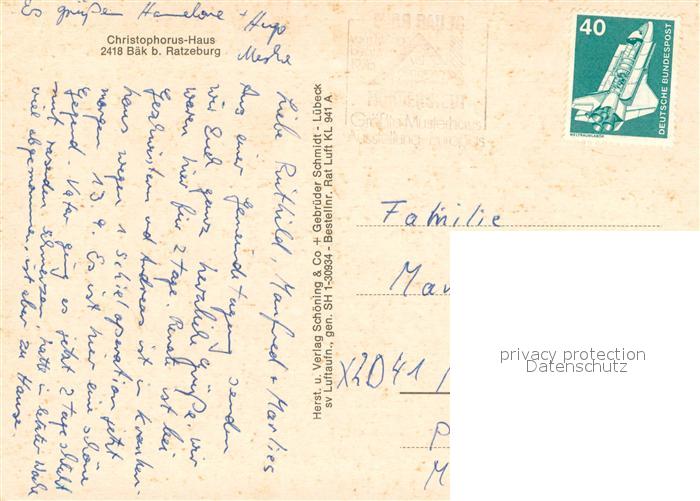 Christophorus-Haus
2418 Bäk b. Ratzeburg
Liebe Ruthild, Manfred + Marlies
Aus einer Gemeindetagung senden
wir Euch ganz herzliche Grüße. Wir
waren hier für 2 Tage. Renate ist bei
Geschwistern und Andreas ist im Kranken-
haus wegen 1 Schieloperation jetzt
morgen 13 J. Es ist hier eine schöne
Gegend. Vater ging es jetzt 2 Tage schlecht
mit Schmerzen, hatte in letzter Woche
viel abgenommen, ist aber zu Hause
Es grüßen Hannelore + Hugo
Herst. u. Verlag Schöning & Co + Gebrüder Schmidt - Lübeck
sv Luftaufn., gen. SH 1-30934 - Bestellnr. Rat Luft KL 941 A
Größte Musterhaus
Ausstellung Europas
40
DEUTSCHE BUNDESPOST
WELTRAUMLABOR
Familie
Man
X2D41
privacy protection
Datenschutz